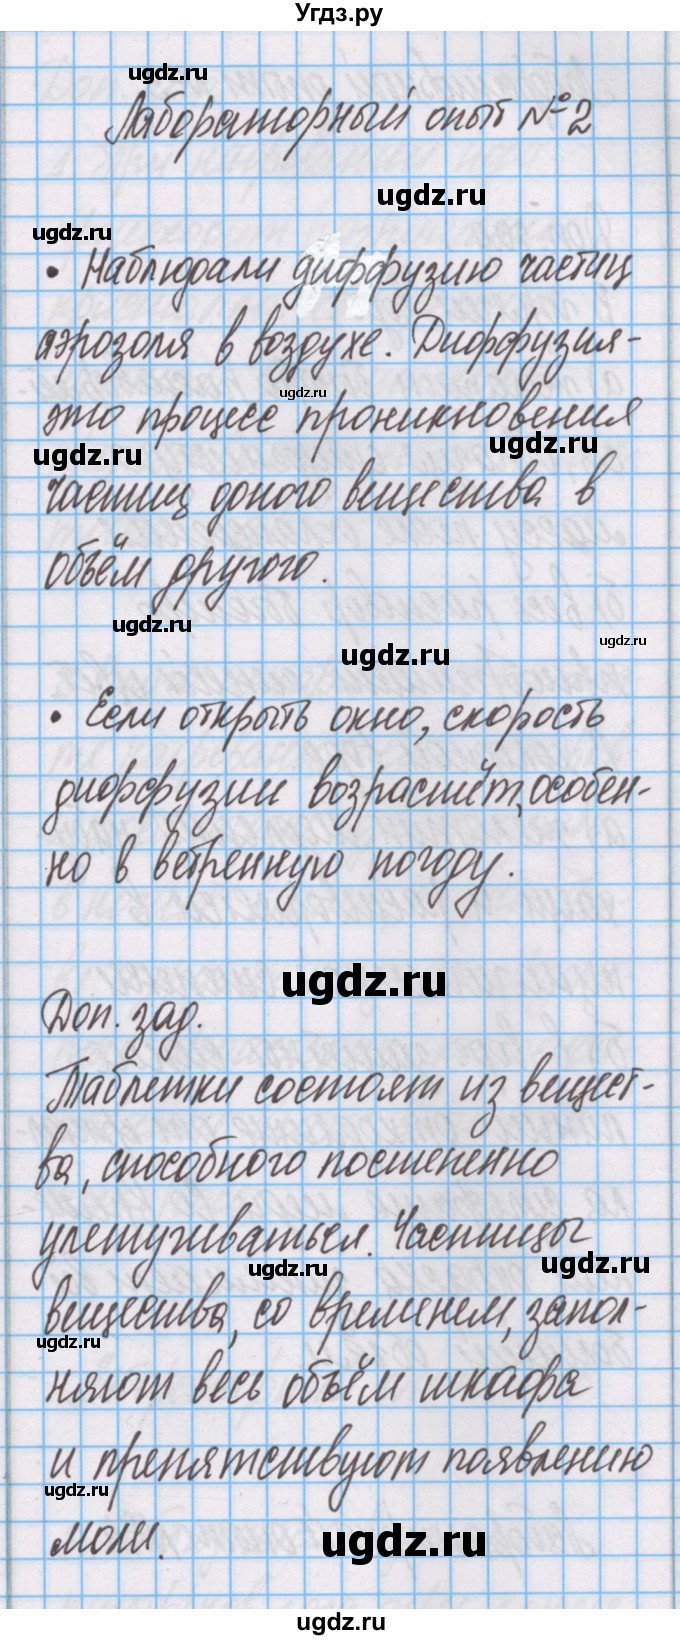 Угдз.ру
ugdz.ru
Лабораторный опыт №2
ugdz.ru
ugdz.ru
• Наблюдали диффузию частиц
аэрозоля в воздухе. Диффузия-
ugdz.ru
это процесс проникновения
ugdz.ru
ugdz.ru
частиц доного вещества в
объём другого.
ugdz.ru
ugdz.ru
ugdz.ru
• Если открыть окно, скорость
диффузии возрастёт, особен-
но в ветренную погоду.
ugdz.ru
Доп. зад.
Таблетки состоят из вещест-
ва, способного постепенно
улетучиваться. Частицы
ugdz.ru
ugdz.ru
вещества, со временем, запол-
ugdz.ru
няют весь объём шкафа
и препятствуют появлению
ugdz.ru
моли.
ugdz.ru
ugdz.ru